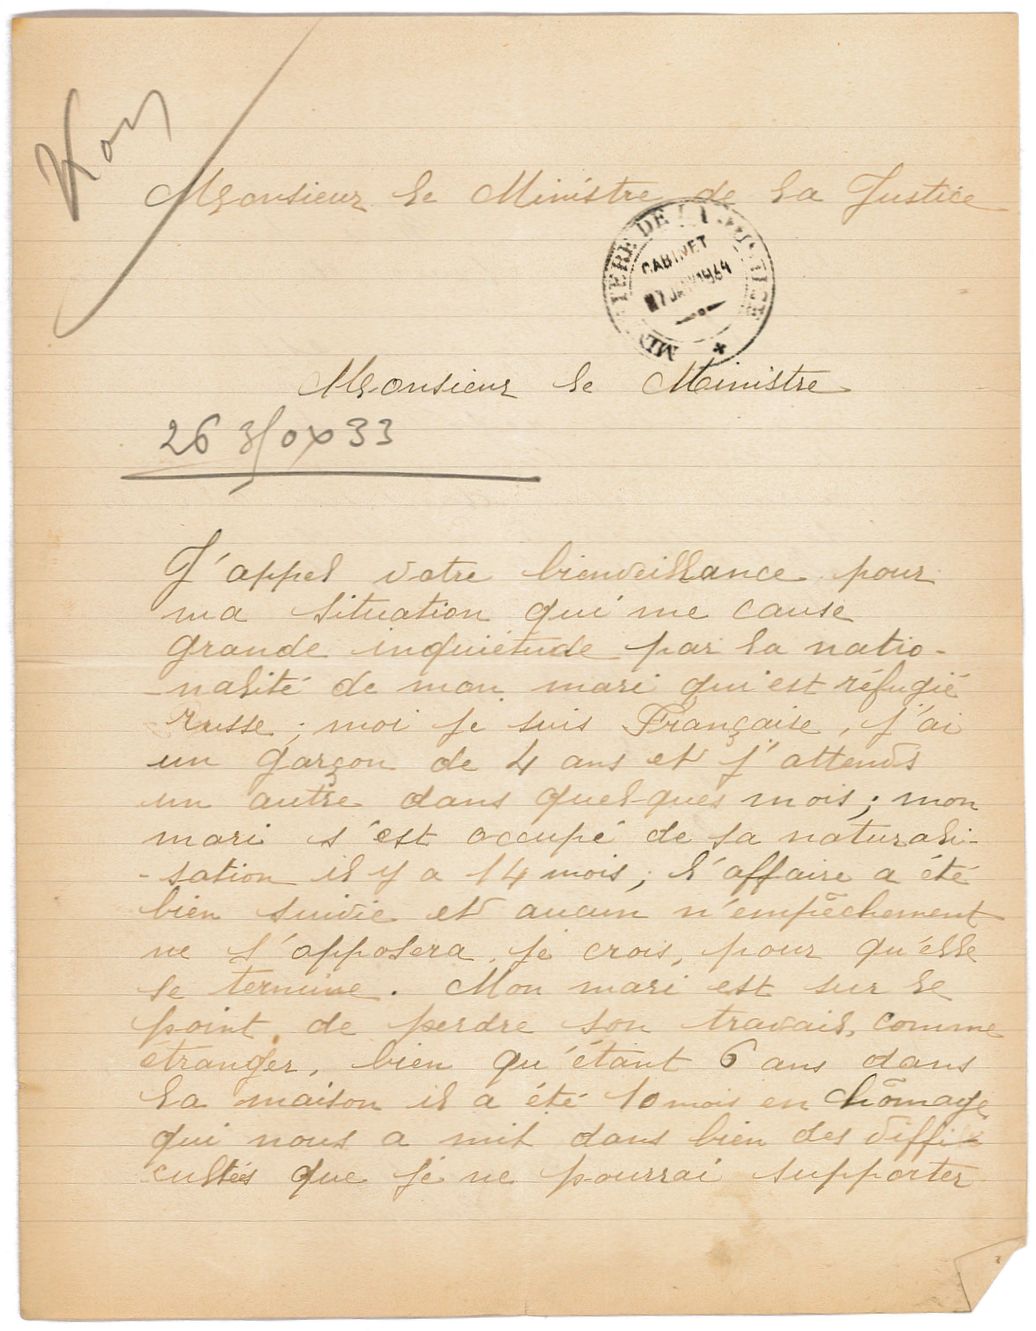 Monsieur le Ministre de la Justice
MINISTERE DE LA JUSTICE
CABINET
Monsieur le Ministre
J'appel votre bienveillance pour
ma situation qui me cause
grande inquiétude par la natio-
-nalité de mon mari qui est réfugié
russe ; moi je suis Française, j'ai
un garçon de 4 ans et j'attends
un autre dans quelques mois ; mon
mari s'est occupé de sa naturali-
-sation il y a 14 mois ; l'affaire a été
bien suivie et aucun n'empêchement
ne s'opposera, je crois, pour qu'elle
se termine. Mon mari est sur le
point, de perdre son travail, comme
étranger, bien qu'étant 6 ans dans
la maison il a été 10 mois en chômage
qui nous a mit dans bien des diffi-
cultés que je ne pourrai supporter